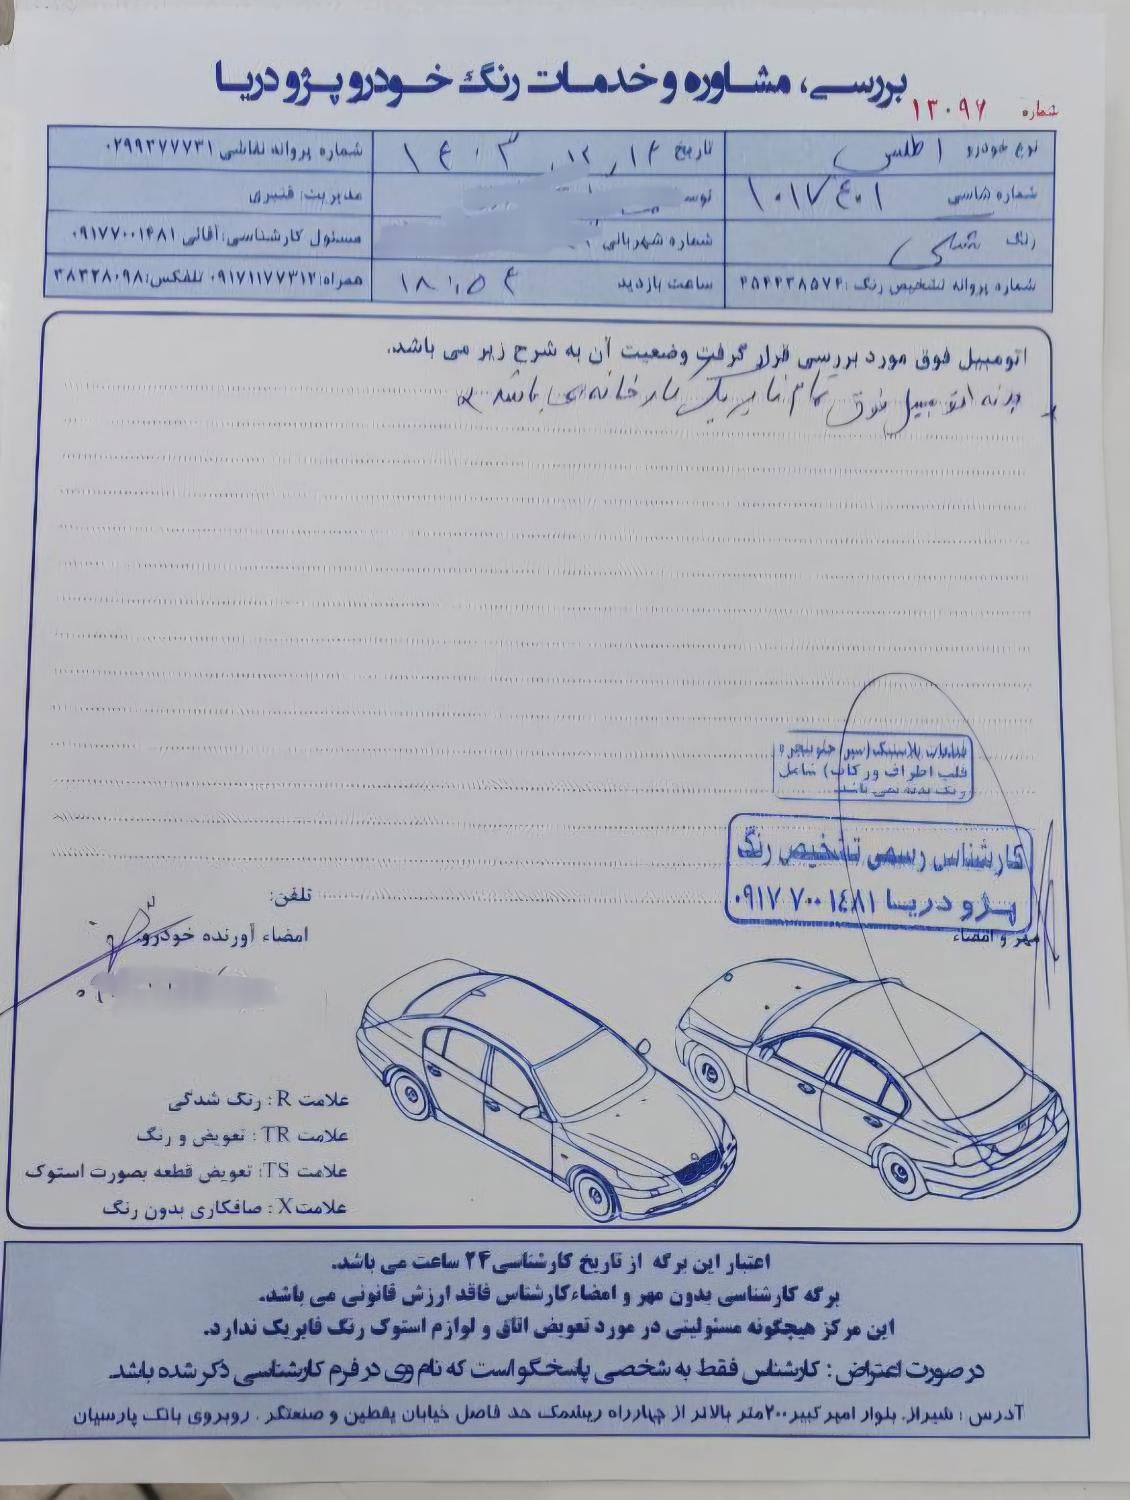 بررسی، مشاوره و خدمات رنگ خودرو پژو دریا
شماره ۱۳۰۹۶
نوع خودرو اطلس
تاریخ ۱۴۰۳,۱۲,۱۴
شماره پروانه نقاشی ۰۲۹۹۳۷۷۷۳۱
شماره شاسی ۱۰۱۷۴۰۱
مدیریت: قنبری
رنگ مشکی
شماره شهربانی
مسئول کارشناسی: آقائی ۰۹۱۷۷۰۰۱۴۸۱
شماره پروانه تشخیص رنگ: ۴۵۴۴۳۸۵۷۴
ساعت بازدید ۱۸:۵۴
همراه: ۰۹۱۷۱۱۷۷۳۱۲ تلفکس: ۳۸۳۲۸۰۹۸
اتومبیل فوق مورد بررسی قرار گرفت وضعیت آن به شرح زیر می باشد.
بدنه اتومبیل فوق تمام فابریک کارخانه می باشد
قطعات پلاستیک (سپر جلو پنجره
قلب اطراف و رکاب) شامل
رنگ بدنه نمی باشد
کارشناس رسمی تشخیص رنگ
پژو دریا ۰۹۱۷۷۰۰۱٤۸۱
مهر و امضاء
تلفن:
امضاء آورنده خودرو
علامت R: رنگ شدگی
علامت TR: تعویض و رنگ
علامت TS: تعویض قطعه بصورت استوک
علامت X: صافکاری بدون رنگ
اعتبار این برگه از تاریخ کارشناسی ۲۴ ساعت می باشد.
برگه کارشناسی بدون مهر و امضاء کارشناس فاقد ارزش قانونی می باشد.
این مرکز هیچگونه مسئولیتی در مورد تعویض اتاق و لوازم استوک رنگ فابریک ندارد.
در صورت اعتراض: کارشناس فقط به شخصی پاسخگو است که نام وی در فرم کارشناسی ذکر شده باشد.
آدرس: شیراز، بلوار امیر کبیر ۲۰۰ متر بالاتر از چهارراه ریشمک حد فاصل خیابان یقطین و صنعتگر. روبروی بانک پارسیان